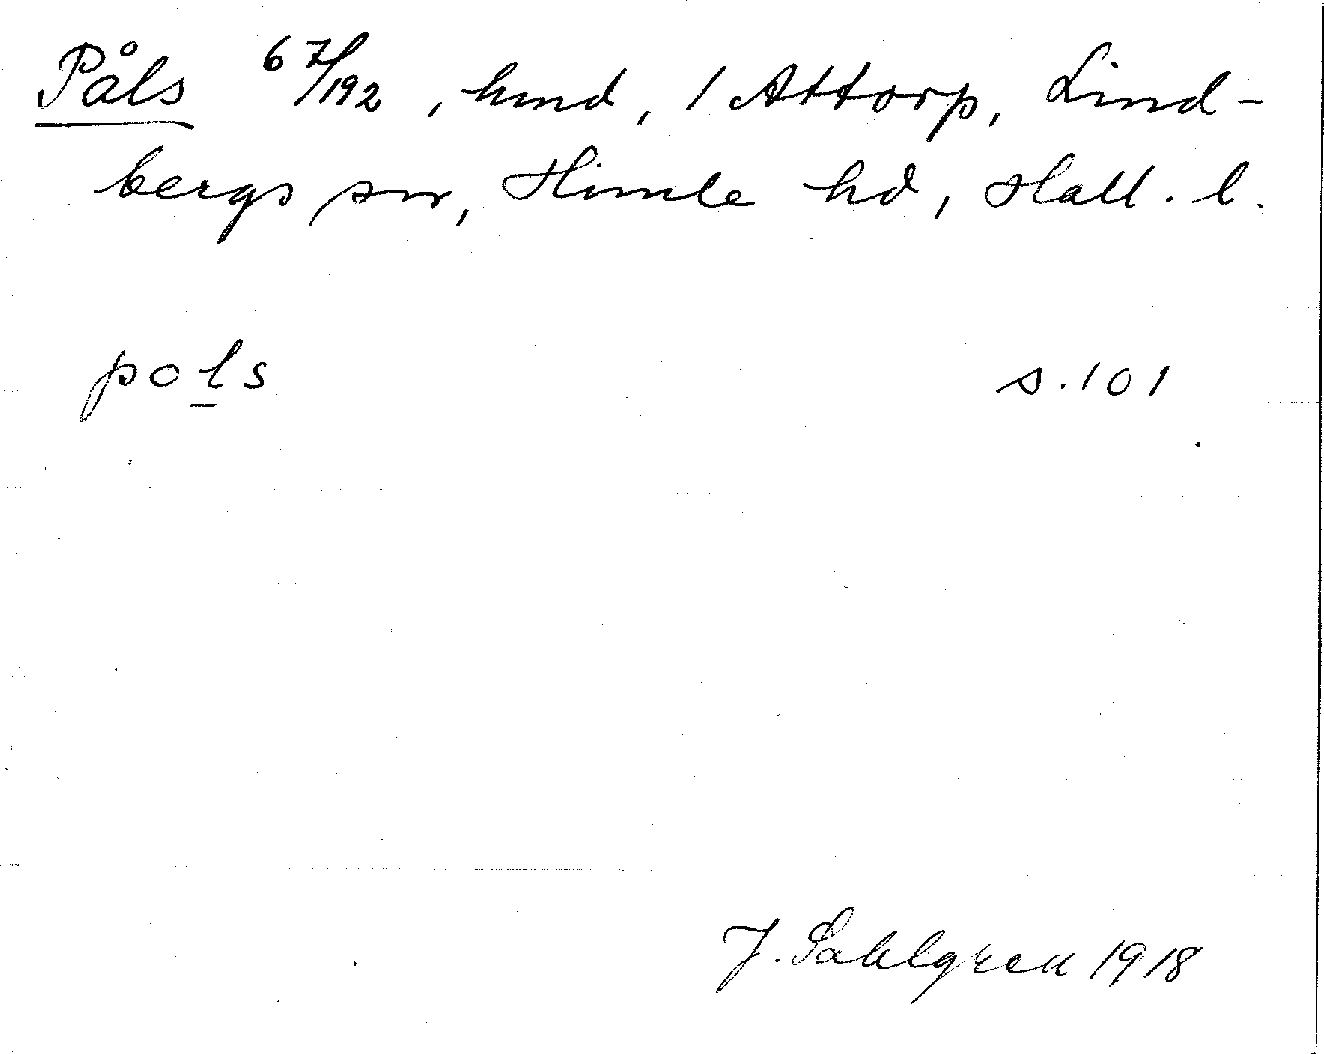 Påls 67/192, hmd, 1 Attorp, Lind-
bergs sn, Himle hd, Hall. l.
pols s. 101
J. Sahlgren 1918